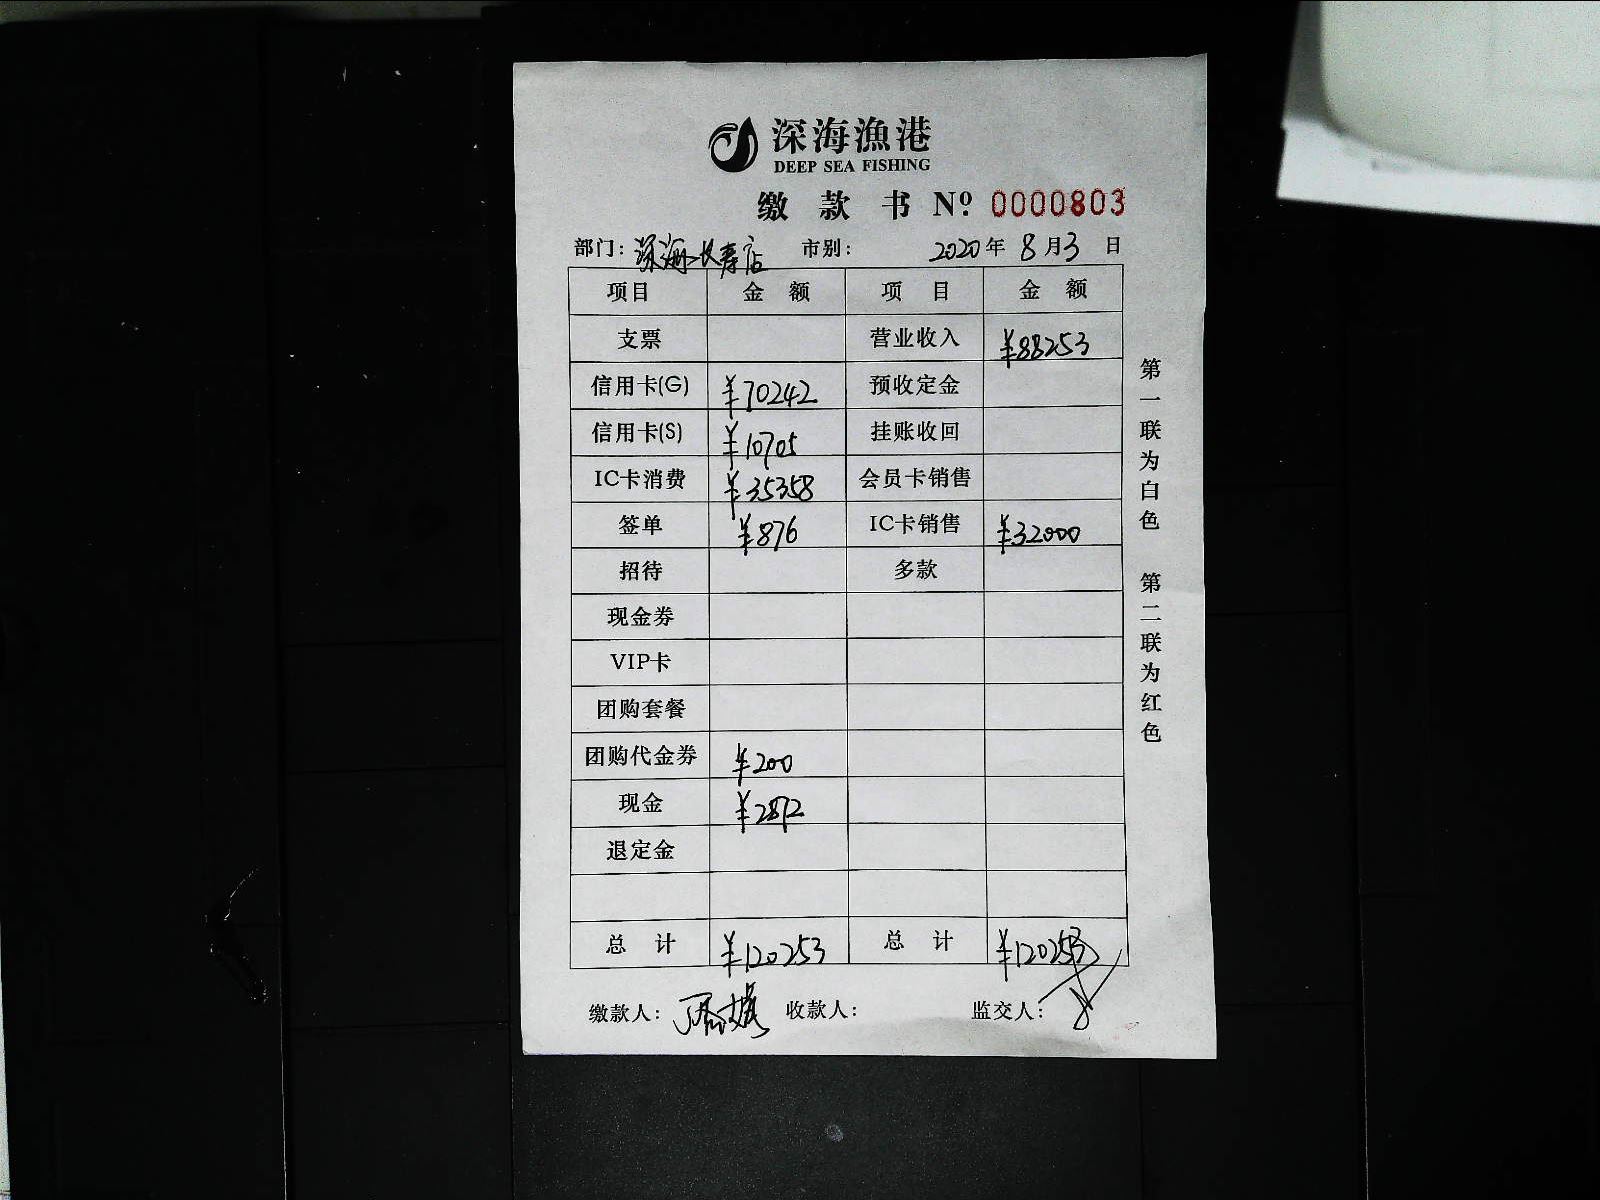 深海漁港
DEEP SEA FISHING
缴款书 Nº 0000803
部门：深海长寿店 市别： 2020年8月3日
项目 金额 项目 金额
支票 营业收入 ¥88253
信用卡(G) ¥70242 预收定金
信用卡(S) ¥10705 挂账收回
IC卡消费 ¥35358 会员卡销售
签单 ¥876 IC卡销售 ¥32000
招待 多款
现金券
VIP卡
团购套餐
团购代金券 ¥200
现金 ¥2872
退定金
总计 ¥120253 总计 ¥120253
缴款人： 收款人： 监交人：
第一联为白色 第二联为红色